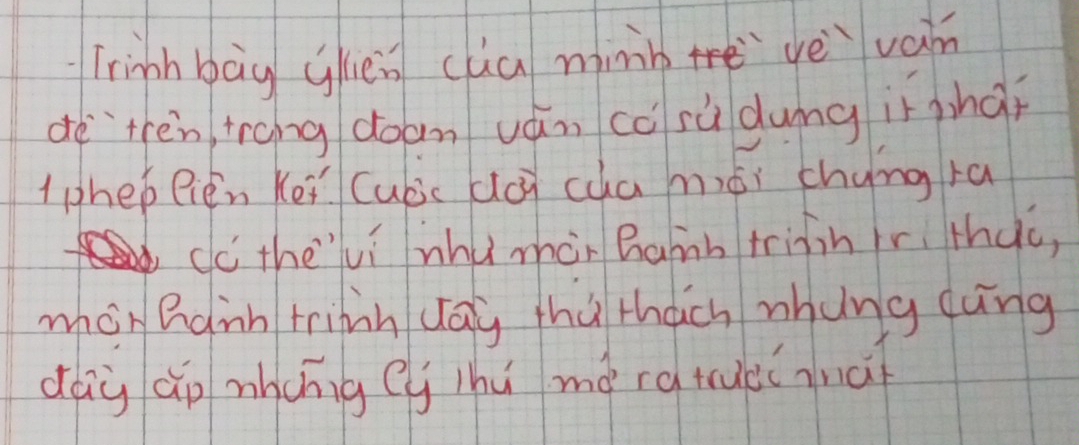 - Trình bày ý kiến của mình về vấn
đề trên, trong đoạn văn có sử dụng ít nhất
1 phép liên kết. Cuộc đời của mỗi chúng ta
có thể ví như một hành trình tri thức,
một hành trình đầy thử thách nhưng cũng
đầy ắp những lý thú mở ra trước mắt